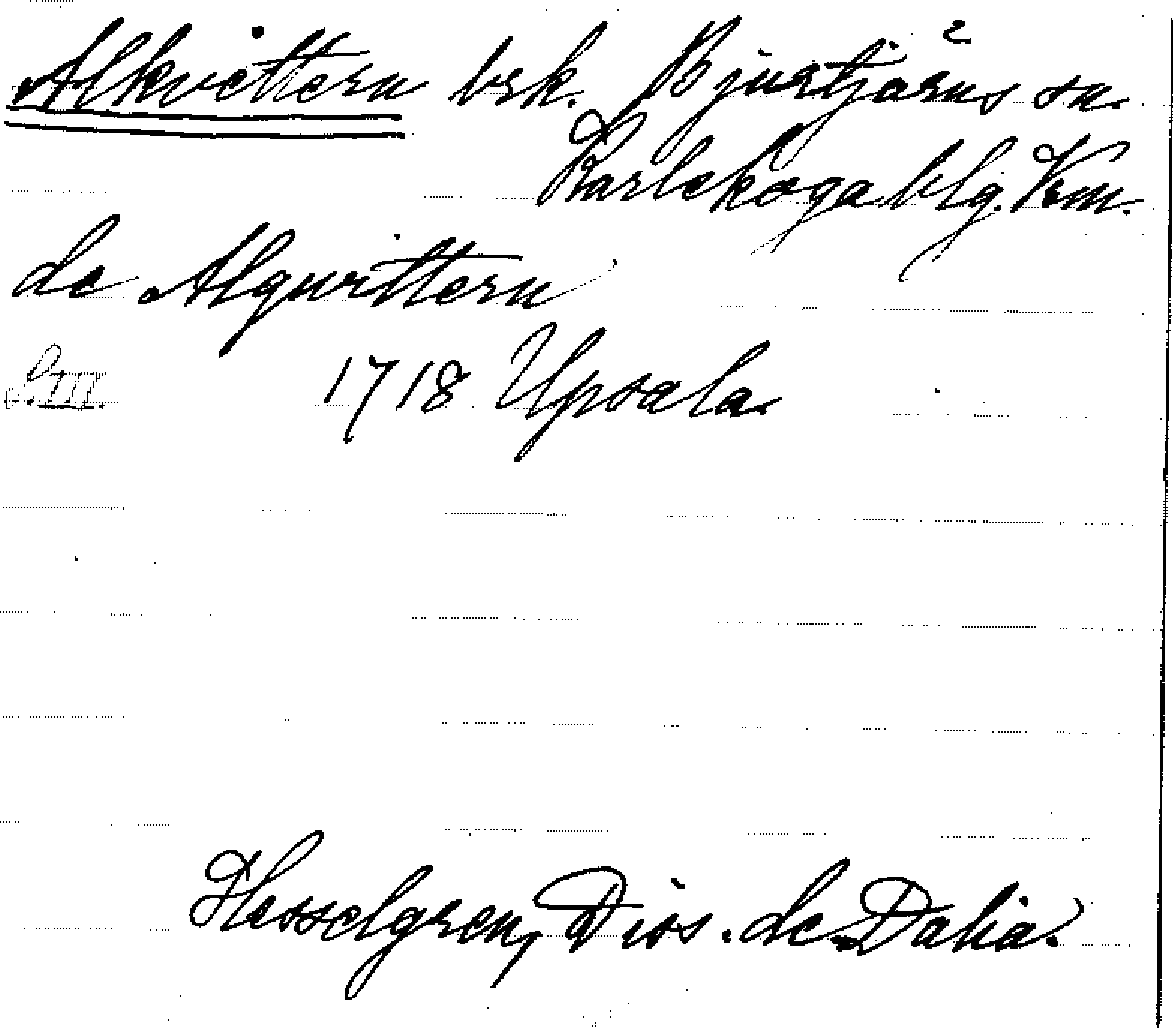 Alkvettern brk. Bjurtjärns sn.
Karlskoga blg. Krm.
de Alqvittern
1718 Upsala
Hesselgren, Diss. de Dalia.